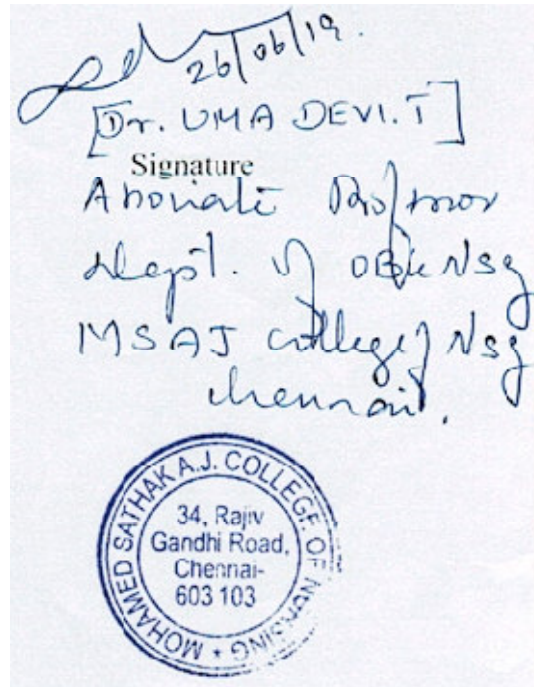 26/06/19.
[Dr. UMA DEVI.T]
Signature
Associate Professor
Dept. of OBG Nsg
MSAJ College of Nsg
Chennai.
MOHAMED SATHAK A.J. COLLEGE OF NURSING *
34, Rajiv
Gandhi Road,
Chennai-
603 103